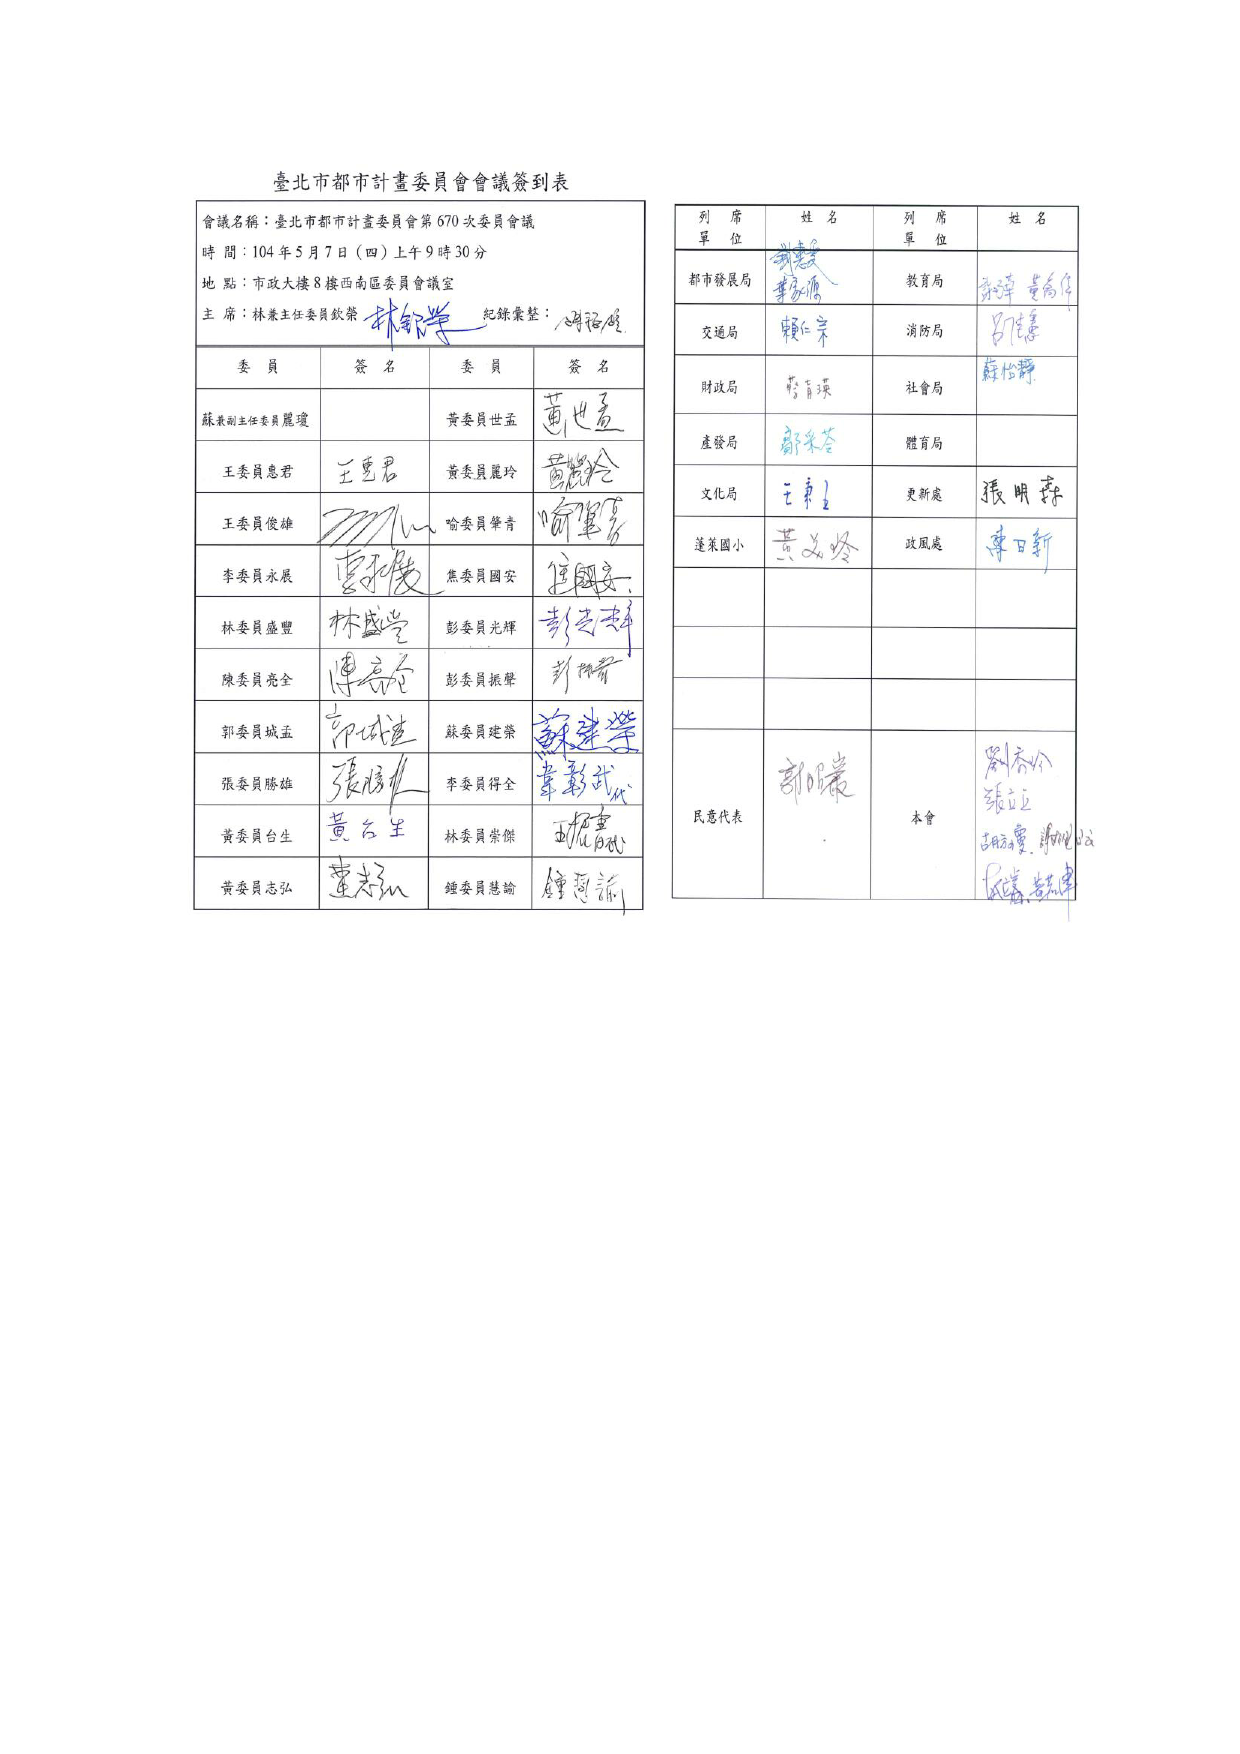 臺北市都市計畫委員會會議簽到表
會議名稱：臺北市都市計畫委員會第670次委員會議
時 間：104年5月7日（四）上午9時30分
地 點：市政大樓8樓西南區委員會議室
主 席：林兼主任委員欽榮 林欽榮 紀錄彙整：
委 員 簽 名 委 員 簽 名
蘇兼副主任委員麗瓊 黃委員世孟 黃世孟
王委員惠君 王惠君 黃委員麗玲 黃麗玲
王委員俊雄 喻委員肇青 喻肇青
李委員永展 李永展 焦委員國安 焦國安
林委員盛豐 林盛豐 彭委員光輝 彭光輝
陳委員亮全 陳亮全 彭委員振聲 彭振聲
郭委員城孟 郭城孟 蘇委員建榮 蘇建榮
張委員勝雄 張勝雄 李委員得全 韋彰武代
黃委員台生 黃台生 林委員崇傑 代
黃委員志弘 黃志弘 鍾委員慧諭 鍾慧諭
列 席 單 位 姓 名 列 席 單 位 姓 名
都市發展局 劉惠雯 葉家源 教育局
交通局 賴仁宗 消防局 呂佳憲
財政局 蔡青瑛 社會局 蘇怡靜
產發局 鄒采蓉 體育局
文化局 王秉 更新處 張明森
蓬萊國小 黃美玲 政風處 陳日新
民意代表 郭昭巖 本會 劉秀玲
張立立
胡方瓊